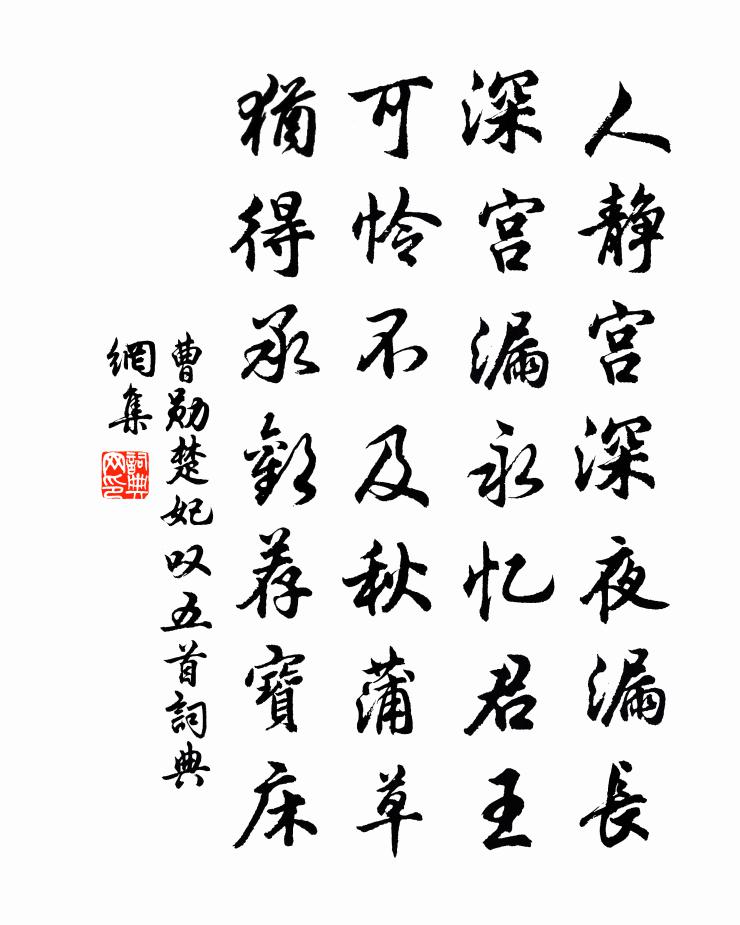 人静宫深夜漏長
深宫漏永忆君王
可怜不及秋蒲草
猶得承歡荐寶床
曹勛楚妃叹五首詞典
網集
詞典網印